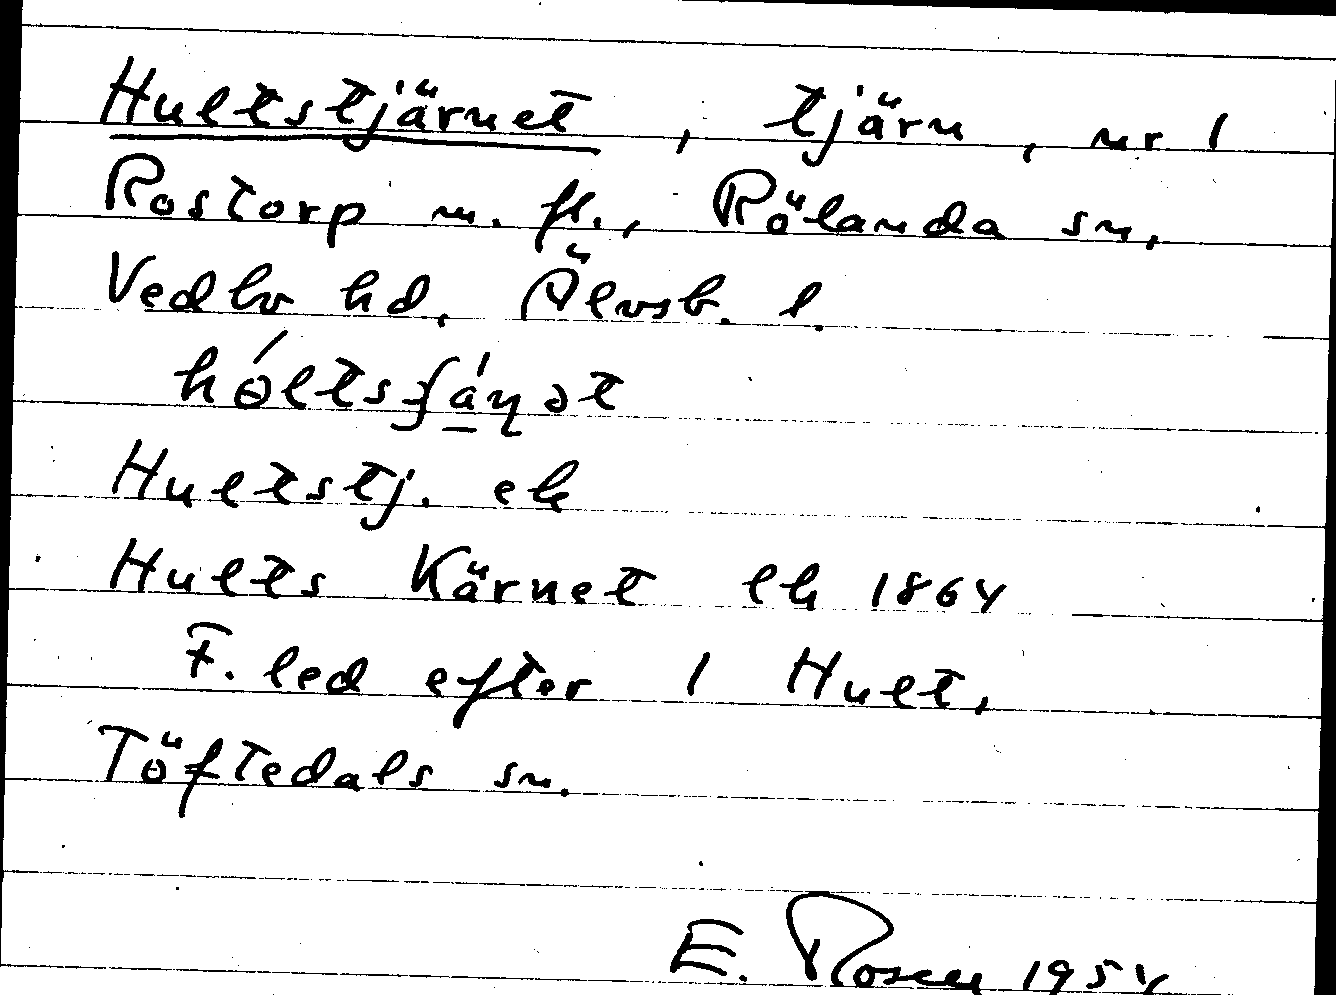 Hultstjärnet, tjärn, nr 1
Rostorp m. fl., Rölanda sn,
Vedbo hd, Älvsb. l.
hóltsʃá̱ṇət
Hultstj. ek
Hults Kärnet lk 1864
F. led efter 1 Hult,
Töftedals sn.
E. Rosen 1954